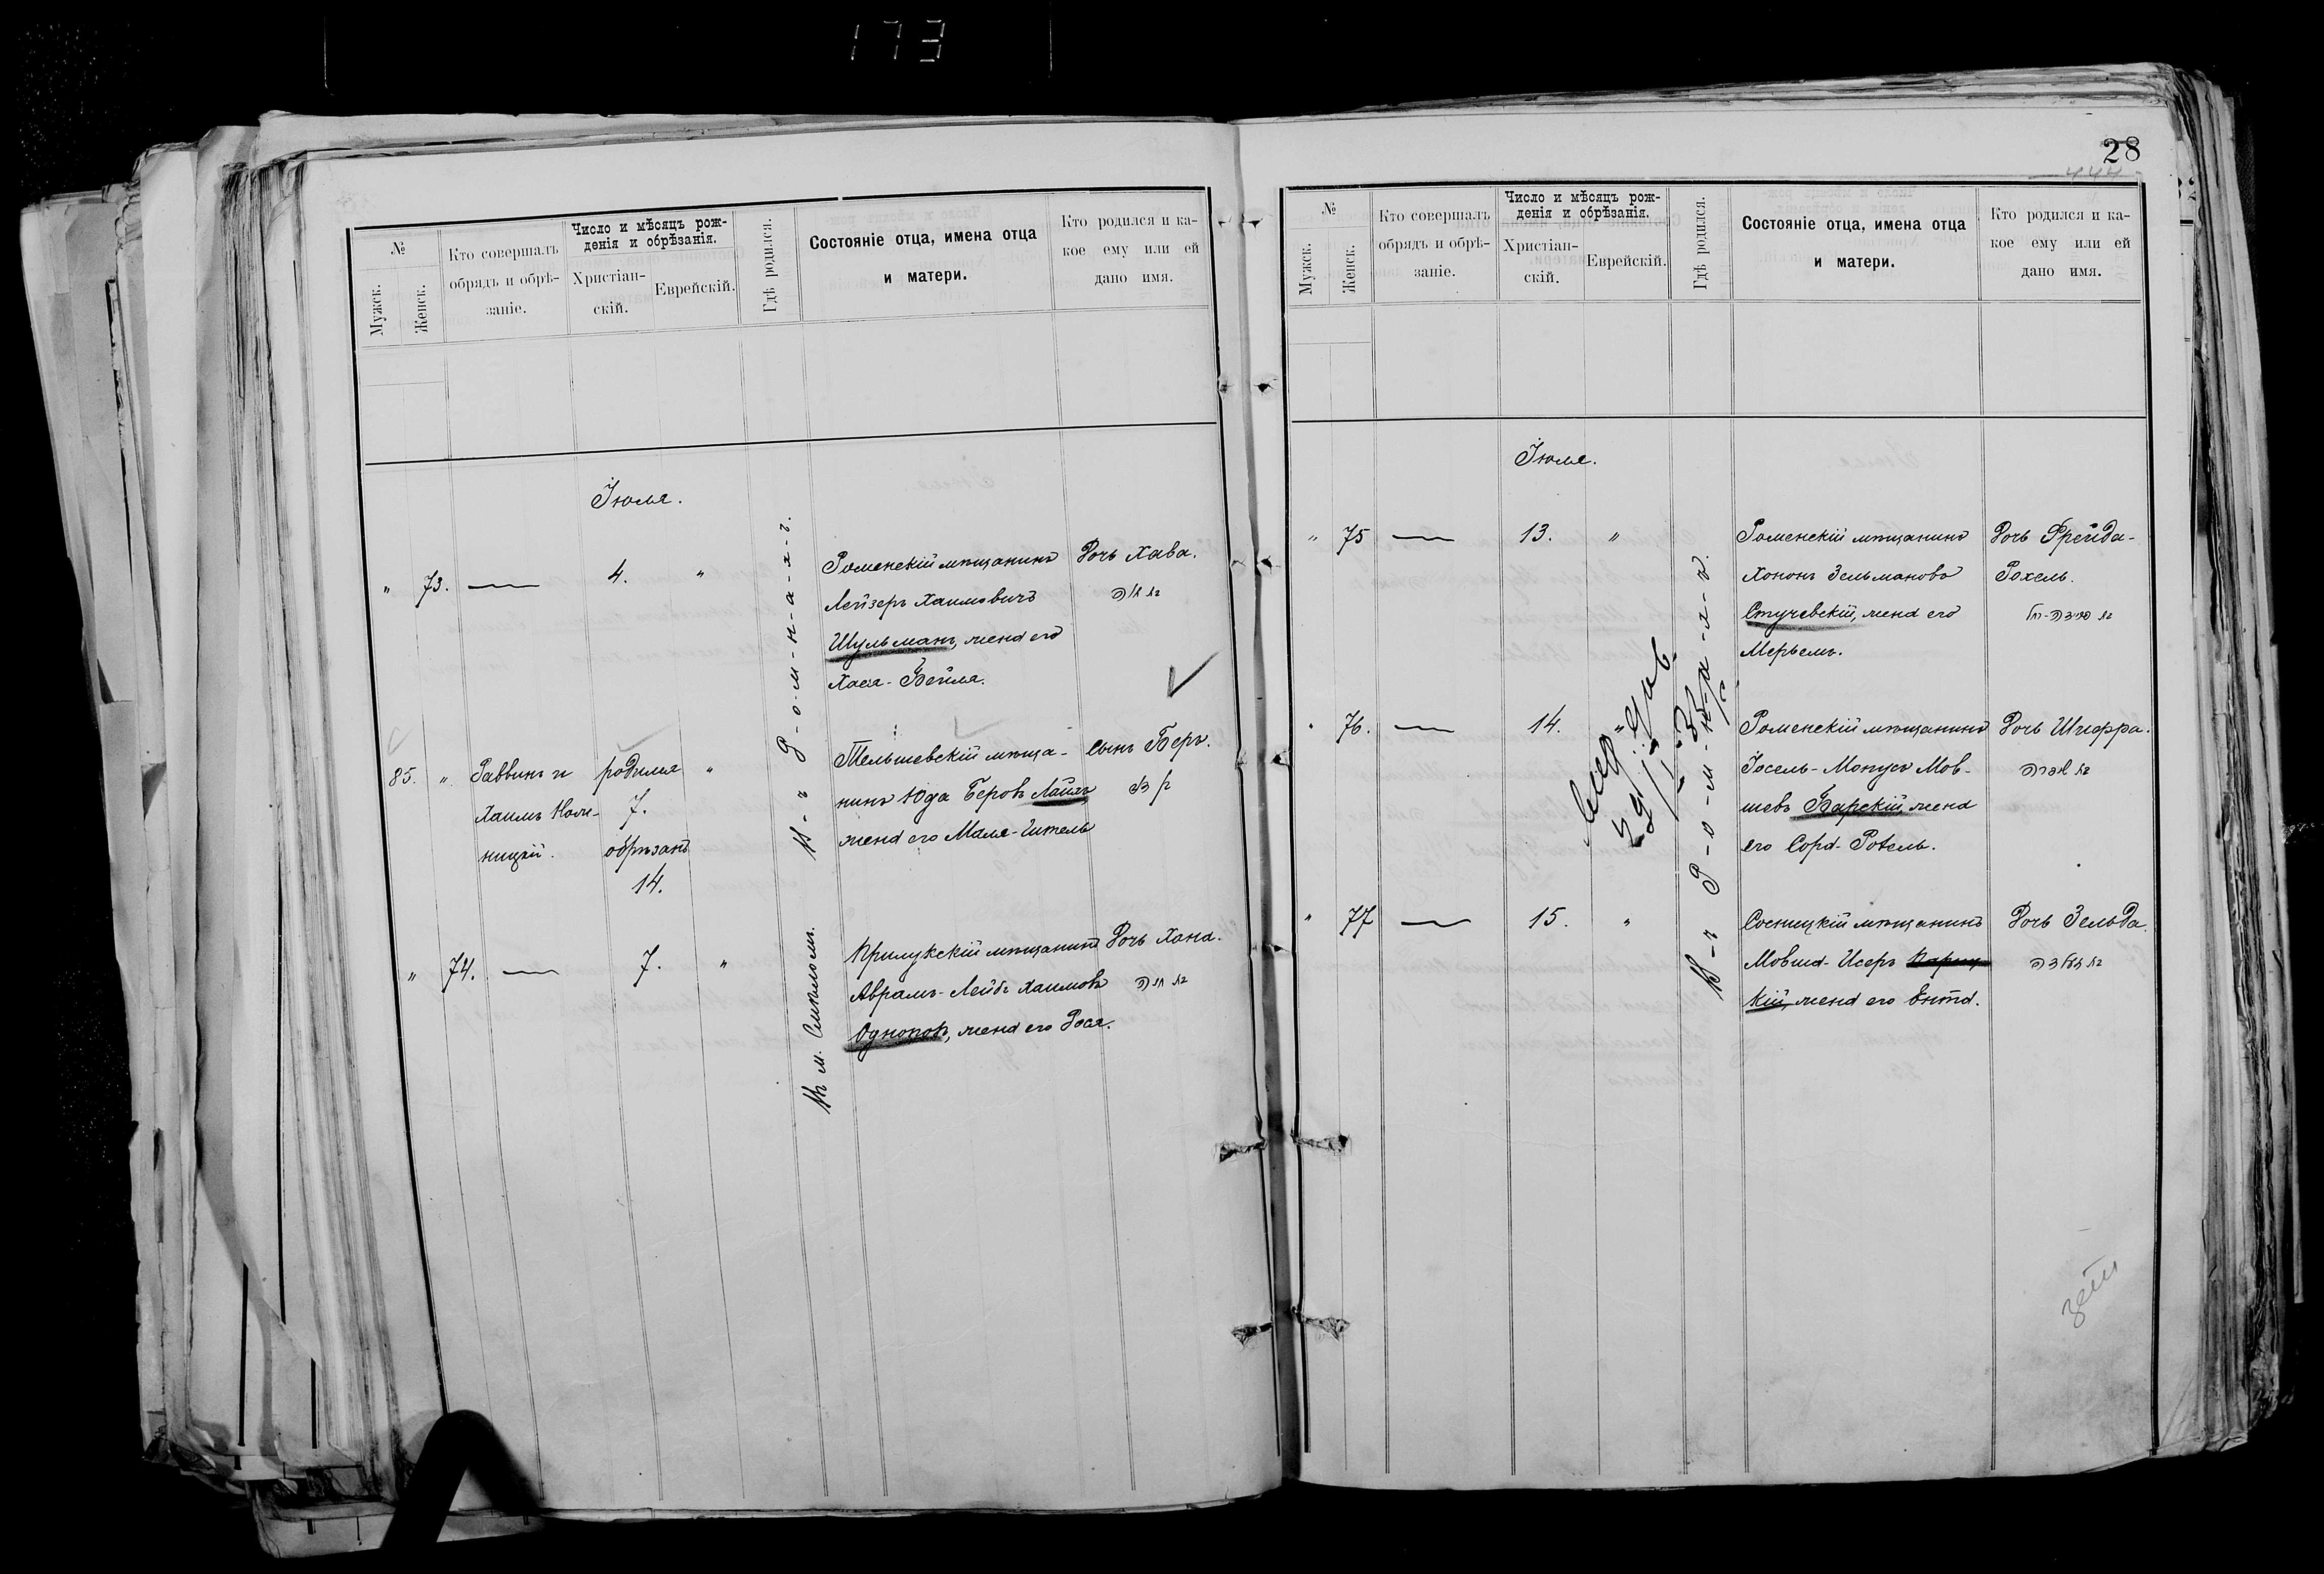 173
№
Мужск.
Женск.
Кто совершалъ
обрядъ и обрѣ-
заніе.
Число и мѣсяцъ рож-
денія и обрѣзанія.
Христіан-
скій.
Еврейскій.
Гдѣ родился.
Состояніе отца, имена отца
и матери.
Кто родился и ка-
кое ему или ей
дано имя.
Іюля.
В-ъ Р-о-м-н-а-х-ъ.
" 73. — 4. "
Роменскій мѣщанинъ
Лейзеръ Хаимовичъ
Шульманъ, жена его
Хася-Бейля.
Дочь Хава.
85. "
Раввинъ и
Хаимъ
родился
7.
обрѣзанъ
14.
"
Тельшевскій мѣща-
нинъ Юда Беровъ
жена его Маля-Гитель
Сынъ Беръ.
" 74. — 7. "
Въ м. Смѣломъ.
Прилукскій мѣщанинъ
Абрамъ-Лейбъ Хаимовъ
жена его Рося.
Дочь Хана.
28
444
№
Мужск.
Женск.
Кто совершалъ
обрядъ и обрѣ-
заніе.
Число и мѣсяцъ рож-
денія и обрѣзанія.
Христіан-
скій.
Еврейскій.
Гдѣ родился.
Состояніе отца, имена отца
и матери.
Кто родился и ка-
кое ему или ей
дано имя.
Іюля.
В-ъ Р-о-м-н-а-х-ъ.
" 75 — 13. "
Роменскій мѣщанинъ
Хононъ Зельмановъ
Стучевскій, жена его
Мерьемъ.
Дочь Фрейда-
Рохель.
" 76. — 14. "
Роменскій мѣщанинъ
Іосель-Монусъ Мов-
шевъ Барскій, жена
его Сора-Рохель.
Дочь Шифра.
" 77 — 15. "
Сосницкій мѣщанинъ
Мовша-Исеръ
кій, жена его Ента.
Дочь Зельда.